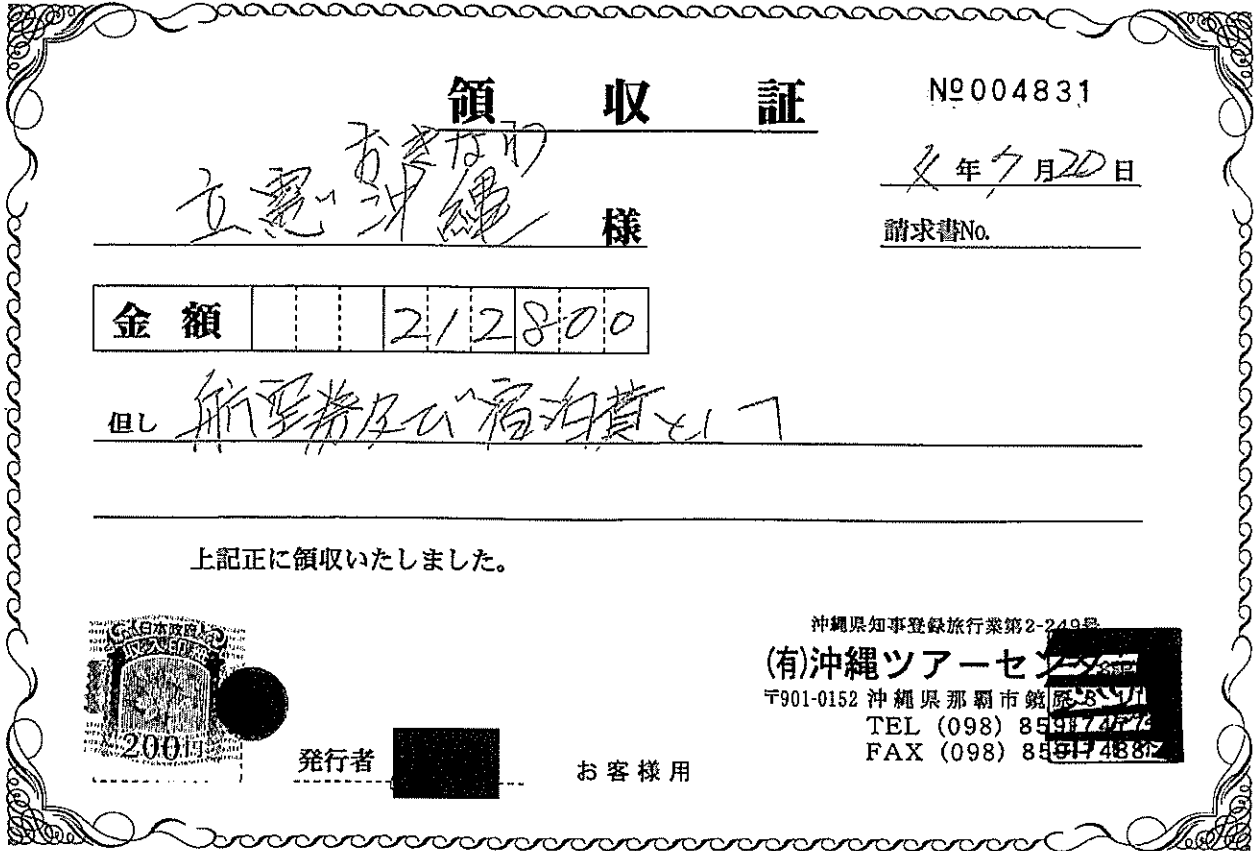 領収証
№004831
年7月20日
おきなわ
立憲沖縄 様
請求書No.
金額 212800
但し 航空券及び宿泊費として
上記正に領収いたしました。
日本政府
収入印紙
200円
発行者
お客様用
沖縄県知事登録旅行業第2-249号
(有)沖縄ツアーセンター
〒901-0152 沖縄県那覇市鏡原
TEL (098)
FAX (098)